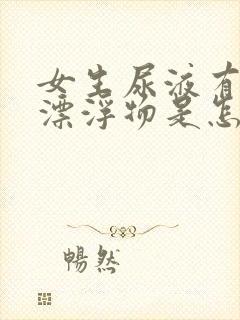 女生尿液有
漂浮物是怎
暢然